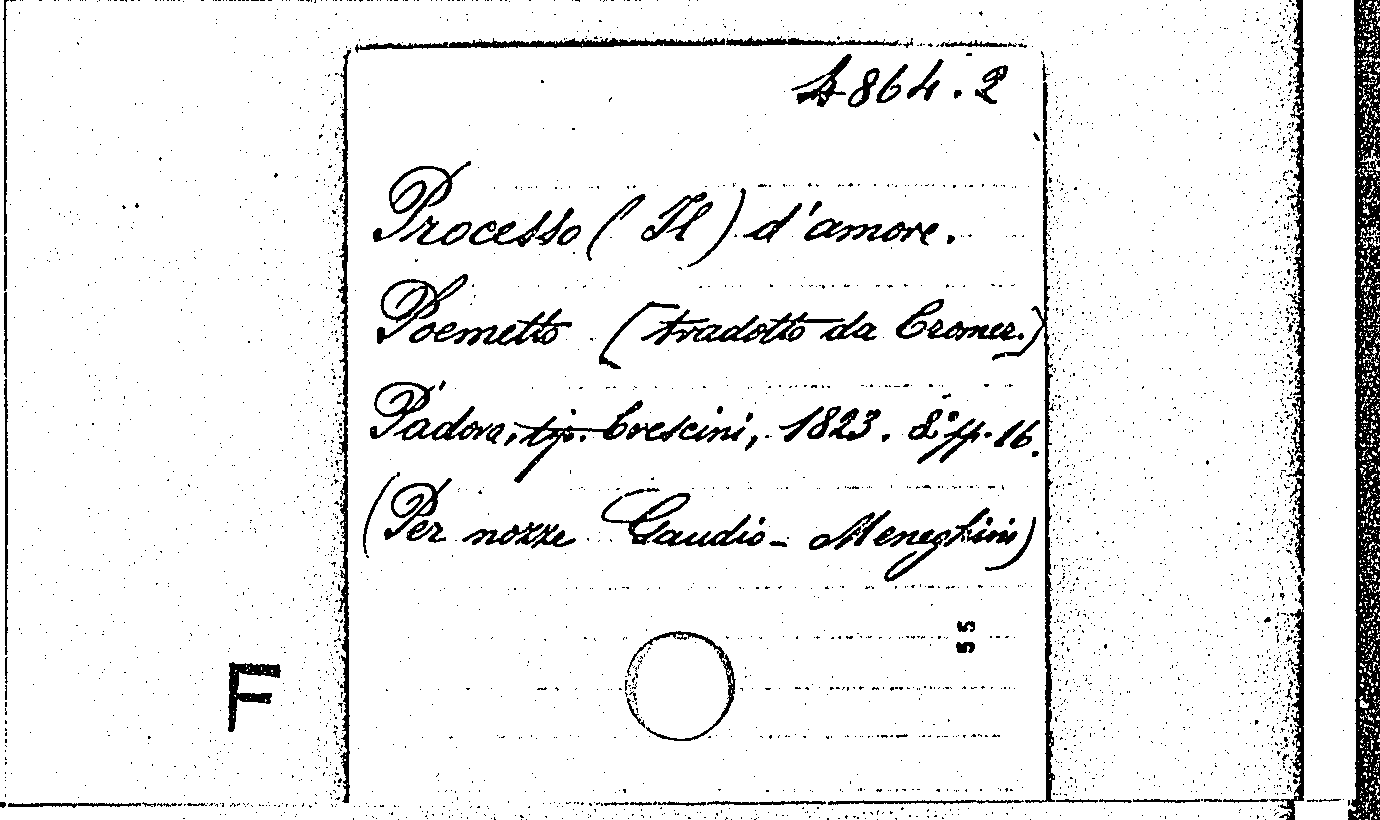 B 864.2
Processo (Il) d'amore.
Poemetto (tradotto da Cromer.)
Padova, tip. Crescini, 1823. 8.° pp. 16.
(Per nozze Gaudio-Meneghini)
55
F